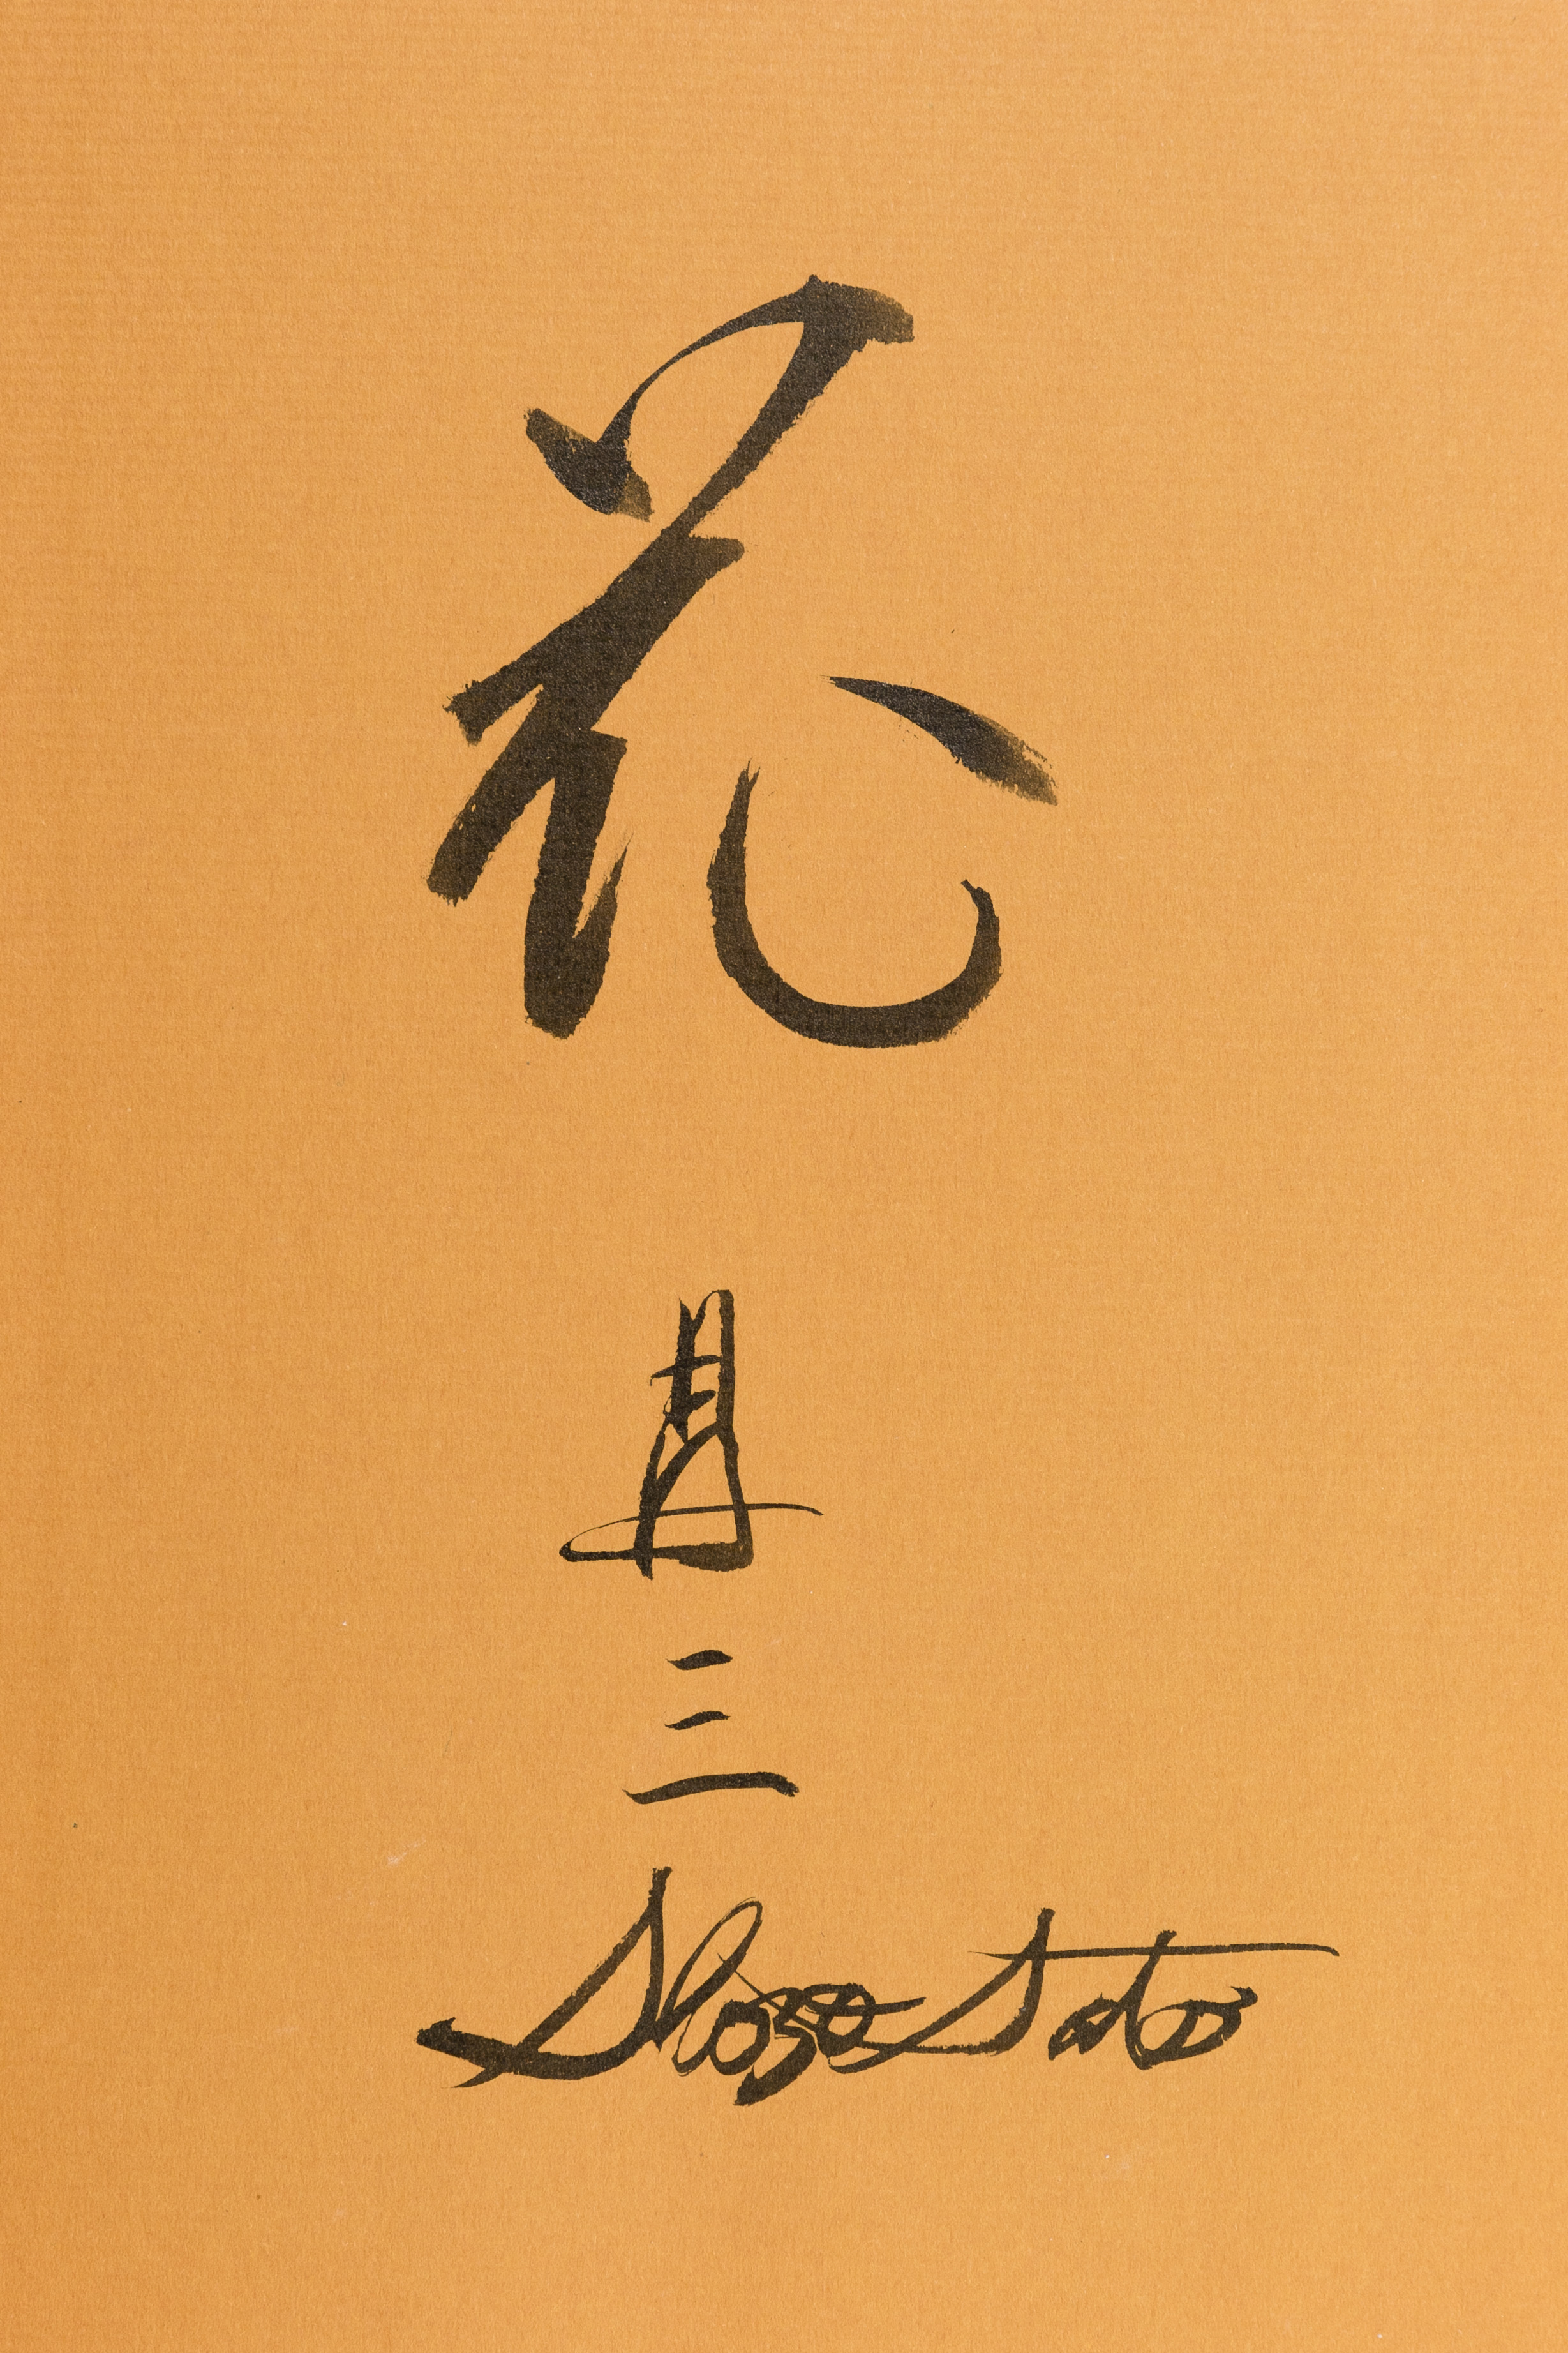 花
昌三
Shozo Sato